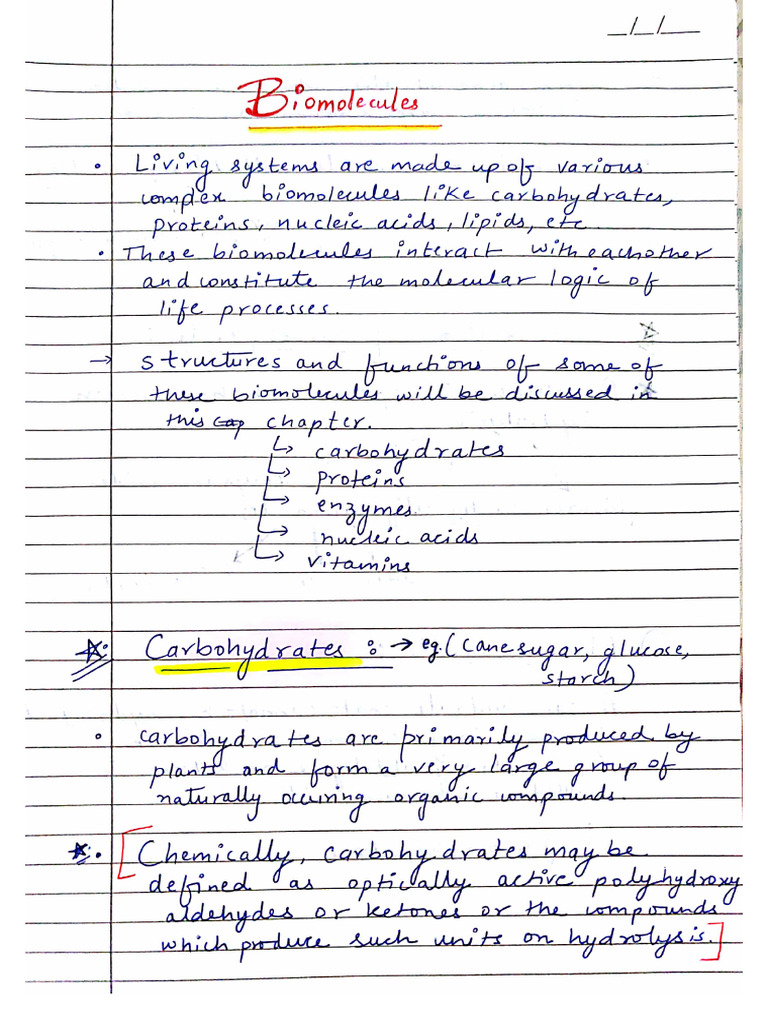 _/_/__
Biomolecules
• Living systems are made up of various
complex biomolecules like carbohydrates,
proteins, nucleic acids, lipids, etc.
• These biomolecules interact with eachother
and constitute the molecular logic of
life processes.
→ structures and functions of some of
these biomolecules will be discussed in
this chapter.
↳ carbohydrates
↳ proteins
↳ enzymes
↳ nucleic acids
↳ vitamins
Carbohydrates : → eg. (cane sugar, glucose,
starch)
• carbohydrates are primarily produced by
plants and form a very large group of
naturally occuring organic compounds.
• [Chemically, carbohydrates may be
defined as optically active polyhydroxy
aldehydes or ketones or the compounds
which produce such units on hydrolysis.]